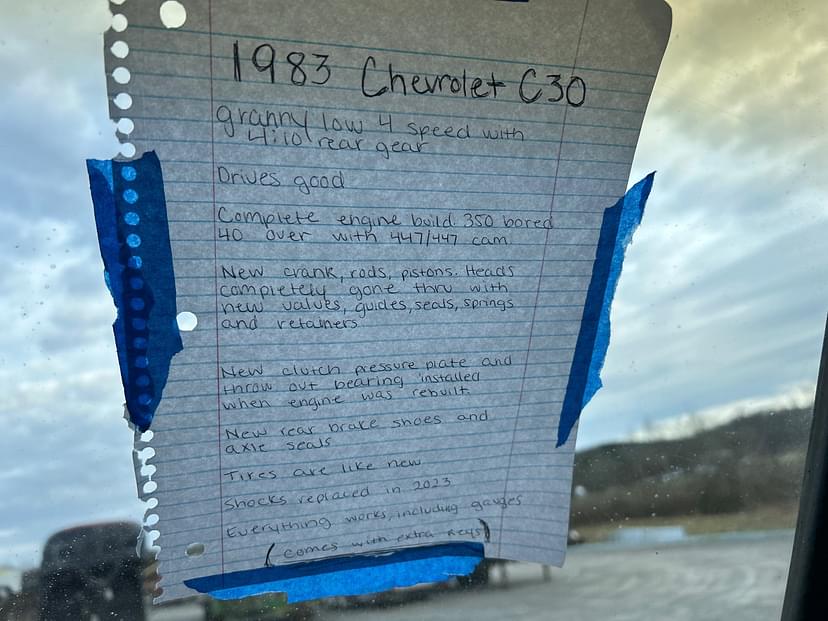 1983 Chevrolet C30
granny low 4 speed with
4:10 rear gear
Drives good
Complete engine build 350 bored
40 over with 447/447 cam
New crank, rods, pistons. Heads
completely gone thru with
new valves, guides, seals, springs
and retainers
New clutch pressure plate and
throw out bearing installed
when engine was rebuilt.
New rear brake shoes and
axle seals
Tires are like new
Shocks replaced in 2023
Everything works, including gauges
(comes with extra keys)